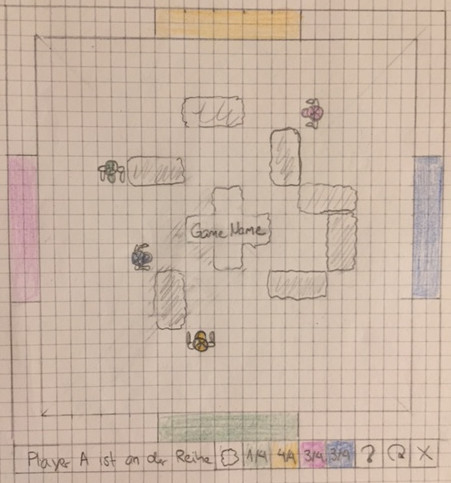 Game Name
Player A ist an der Reihe 1/4 4/4 3/4 3/4 ? X